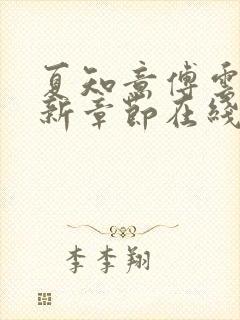 夏知意傅雲
新章節在綫
李李翔